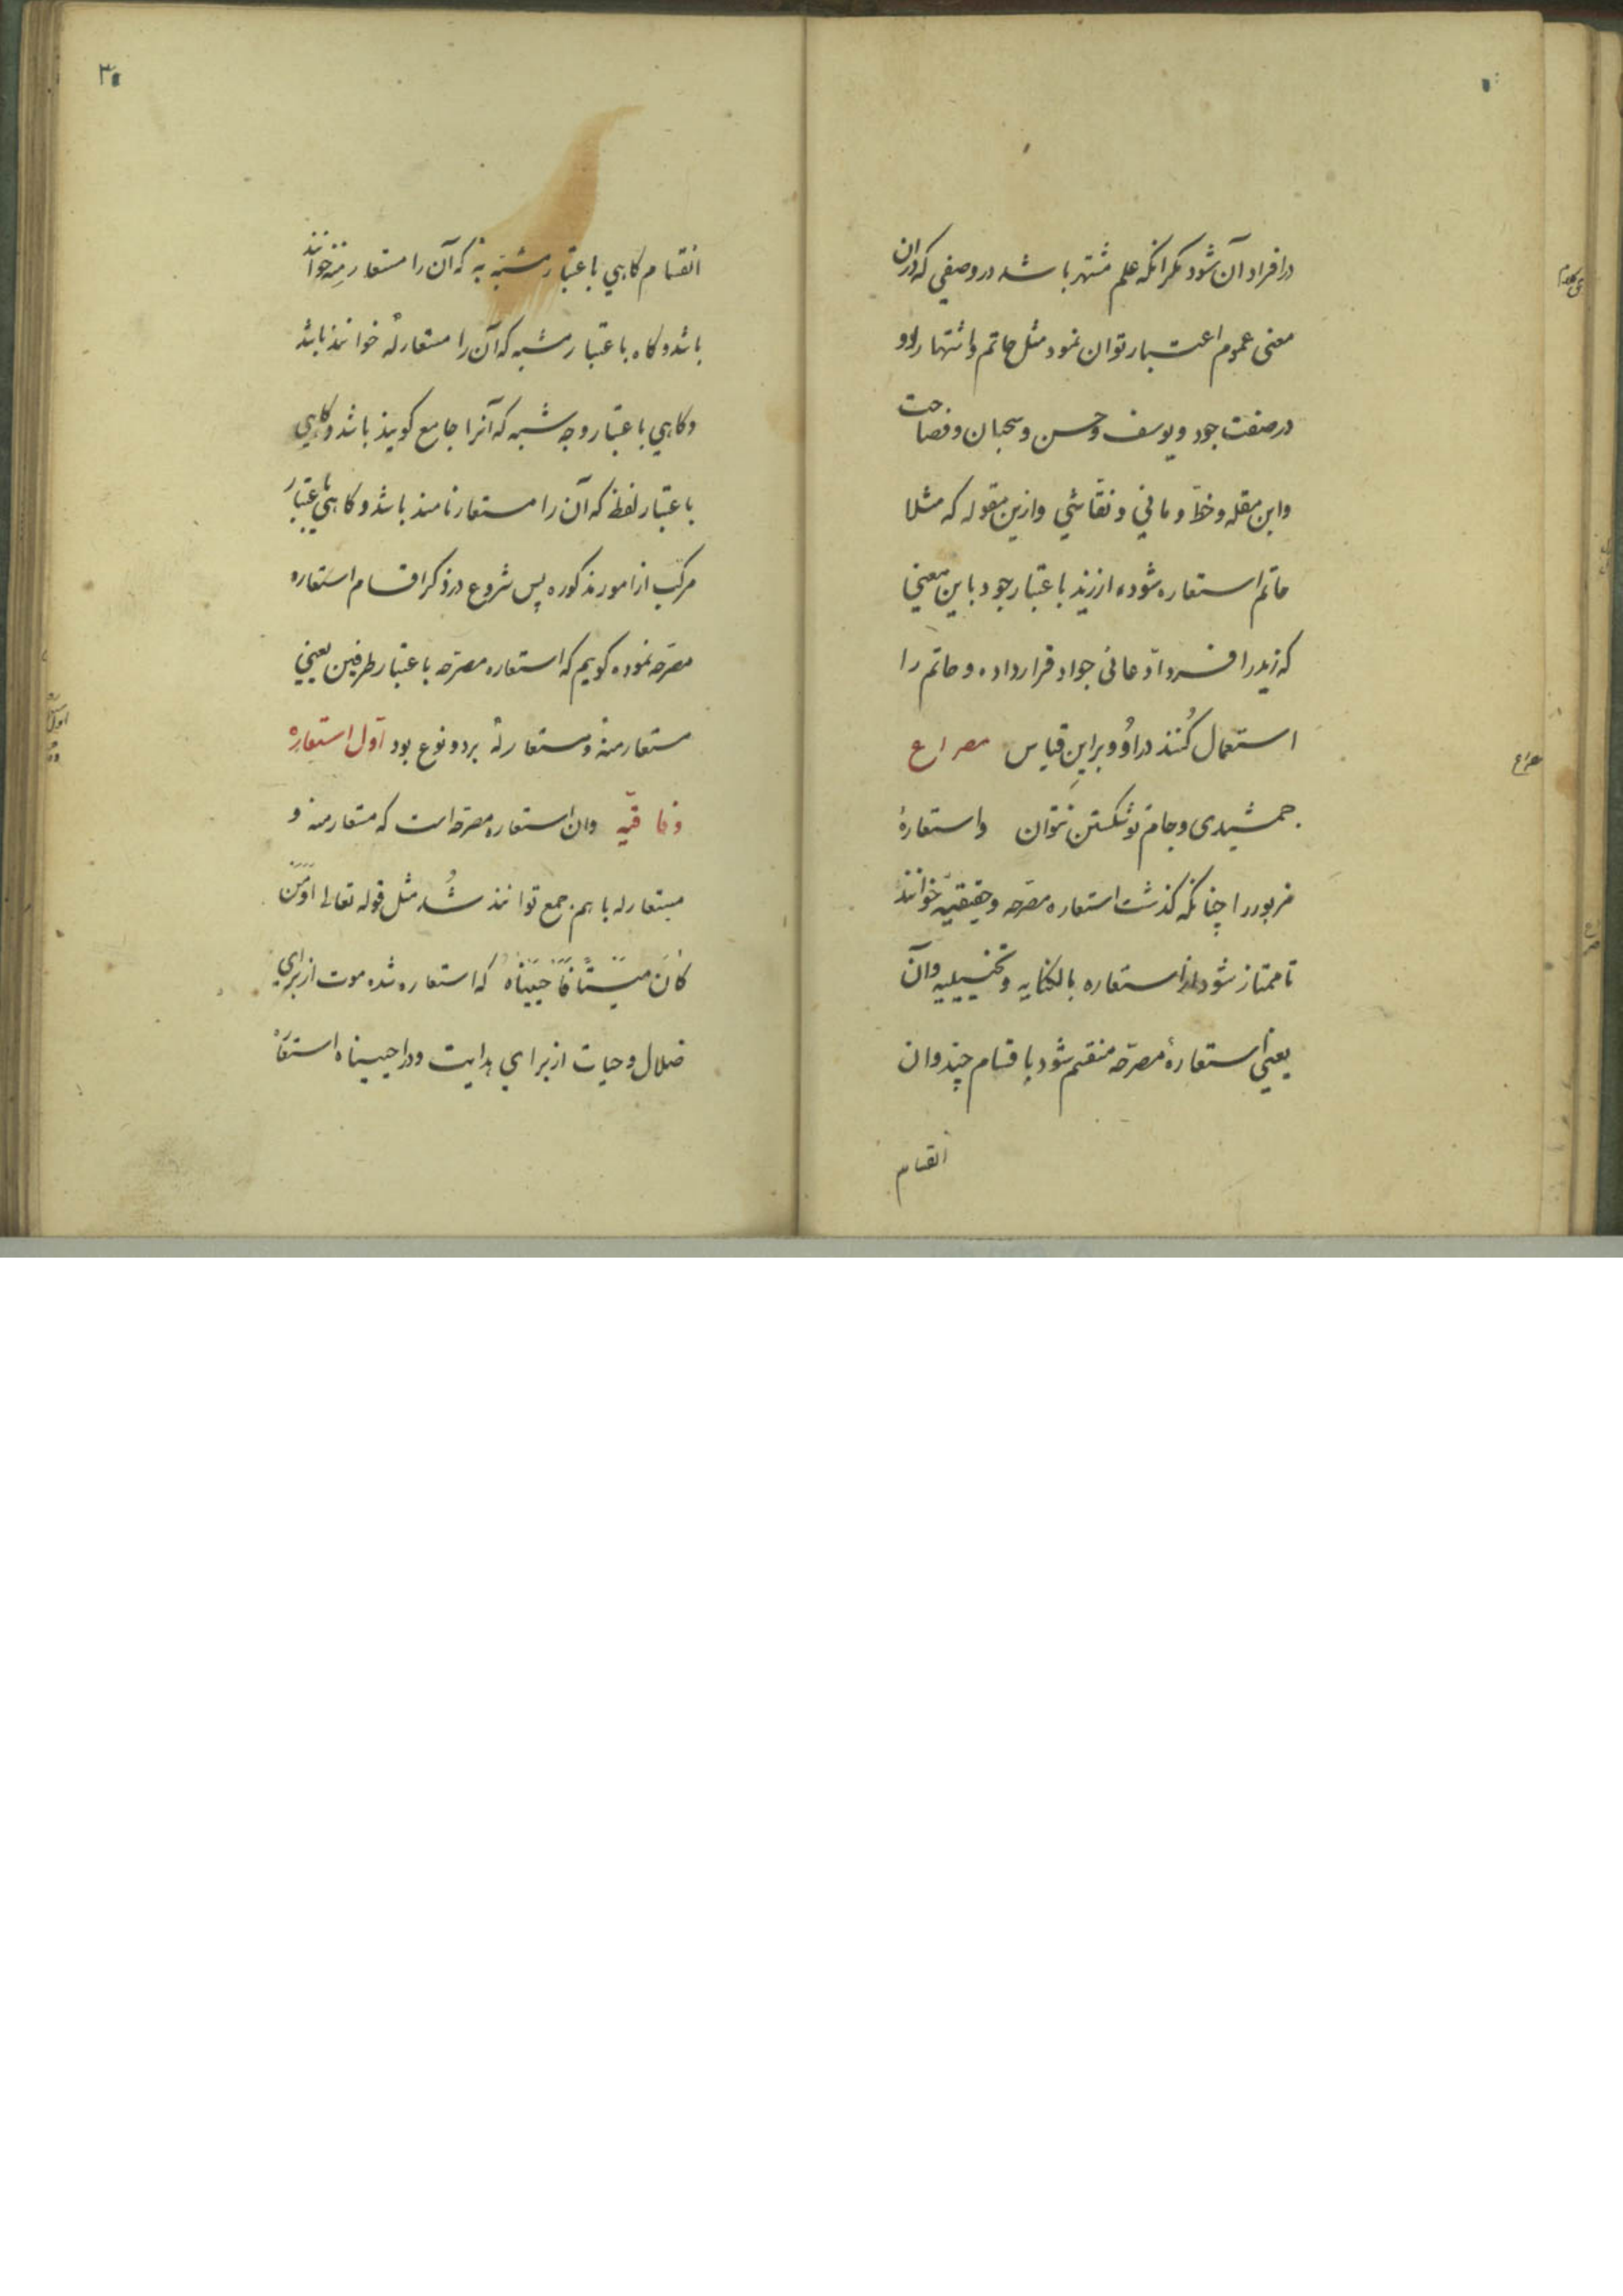 در افراد آن شود مکر انکه علم مشتهر باشد در وصفی که در ان
معنی عموم اعتبار توان نمود مثل حاتم و اشتهار او
در صفت جود و یوسف و حسن و سحبان و فصاحت
وابن مقله و خطّ و مانی و نقّاشی وازین مقوله که مثلا
حاتم استعاره شود از زید باعتبار جود باین معنی
که زید را فرد ادّعائی جواد قرار داده و حاتم را
استعمال کُنند در او و بر این قیاس مصراع
جمشیدی و جام تو شکستن نتوان واستعارهٔ
مزبور را چنانکه کذشت استعاره مصرّحه و حقیقیّه خوانند
تا ممتاز شود از استعاره بالکنایه و تخییلیه و آن
یعنی استعارهٔ مصرّحه منقسم شود باقسام چند وان
انقسام
۳
انقسام کاهی باعتبار مشبّه به که آن را مستعار منه خوانند
باشد و کاه باعتبار مشبه که آن را مستعار له خوانند باشد
و کاهی باعتبار وجه شبه که آنرا جامع کویند باشد و کاهی
باعتبار لفظ که آن را مستعار نامند باشد و کاهی باعتبار
مرکّب از امور مذکوره پس شروع در ذکر اقسام استعاره
مصرّحه نموده کویم که استعاره مصرّحه باعتبار طرفین یعنی
مستعار منه و مستعار له بر دو نوع بود اوّل استعاره
وفاقیّه وان استعاره مصرّحه است که مستعار منه و
مستعار له باهم جمع توانند شُد مثل قوله تعالی اَوَمَن
کانَ مَیْتًا فَاَحْیَیْناه که استعاره شده موت از برای
ضلال و حیات از برای هدایت و در احییناه استعا